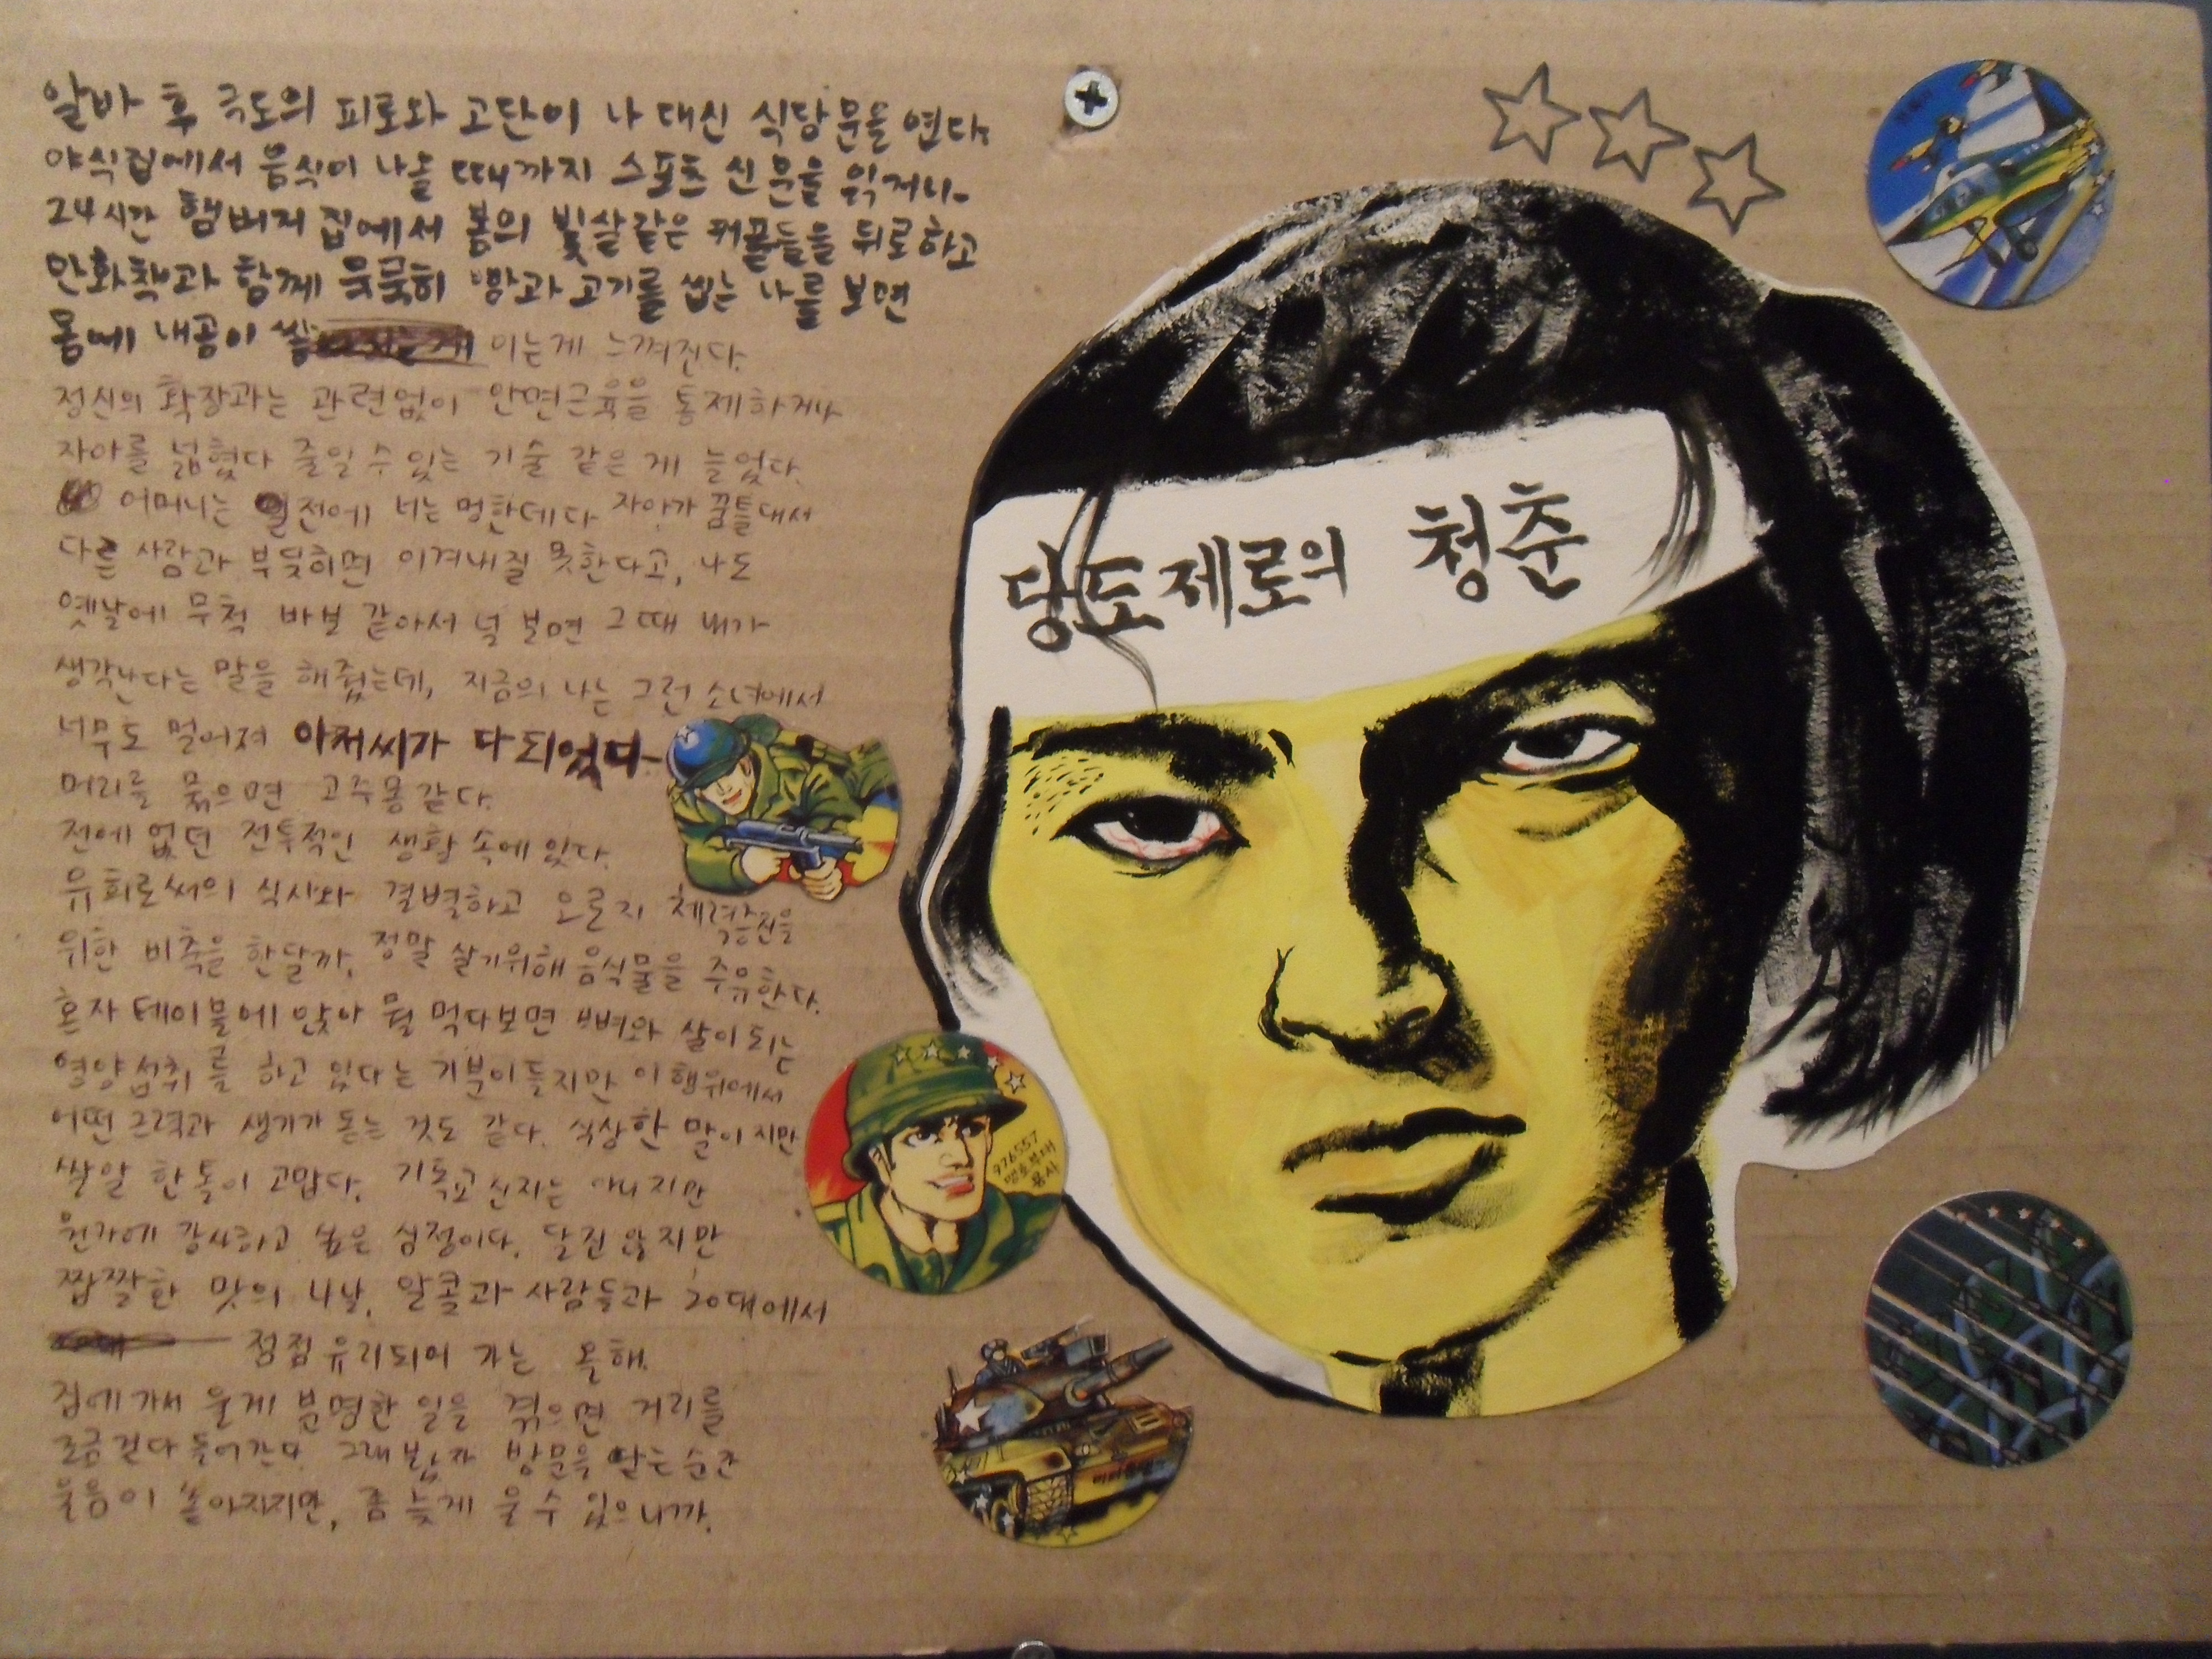 알바 후 극도의 피로와 고단이 나 대신 식당문을 연다.
야식집에서 음식이 나올 때까지 스포츠 신문을 읽거나
24시간 햄버거 집에서 봄의 빛살같은 커플들을 뒤로하고
만화책과 함께 묵묵히 빵과 고기를 씹는 나를 보면
몸에 내공이 쌓 이는게 느껴진다.
정신의 확장과는 관련없이 안면근육을 통제하거나
자아를 넓혔다 줄일 수 있는 기술 같은 게 늘었다.
어머니는 일전에 너는 멍한데다 자아가 꿈틀대서
다른 사람과 부딪히면 이겨내질 못한다고, 나도
옛날에 무척 바보 같아서 널 보면 그때 내가
생각난다는 말을 해줬는데, 지금의 나는 그런 소녀에서
너무도 멀어져 아저씨가 다 되었다-
머리를 묶으면 고주몽같다.
전에 없던 전투적인 생활 속에 있다.
유희로써의 식사와 결별하고 오로지 체력증진을
위한 비축을 한달까. 정말 살기위해 음식물을 주유한다.
혼자 테이블에 앉아 뭘 먹다보면 뼈와 살이 되는
영양섭취를 하고 있다는 기분이들지만 이 행위에서
어떤 근력과 생기가 돋는 것도 같다. 식상한 말이지만
쌀알 한톨이 고맙다. 기독교 신자는 아니지만
뭔가에 감사하고 싶은 심정이다. 달진 않지만
짭짤한 맛의 나날. 알콜과 사람들과 20대에서
점점 유리되어 가는 올해.
집에가서 울게 분명한 일을 겪으면 거리를
조금 걷다 들어간다. 그래봤자 방문을 닫는 순간
울음이 쏟아지지만, 좀 늦게 울 수 있으니까.
당도제로의 청춘
976557
맹호부대
용사